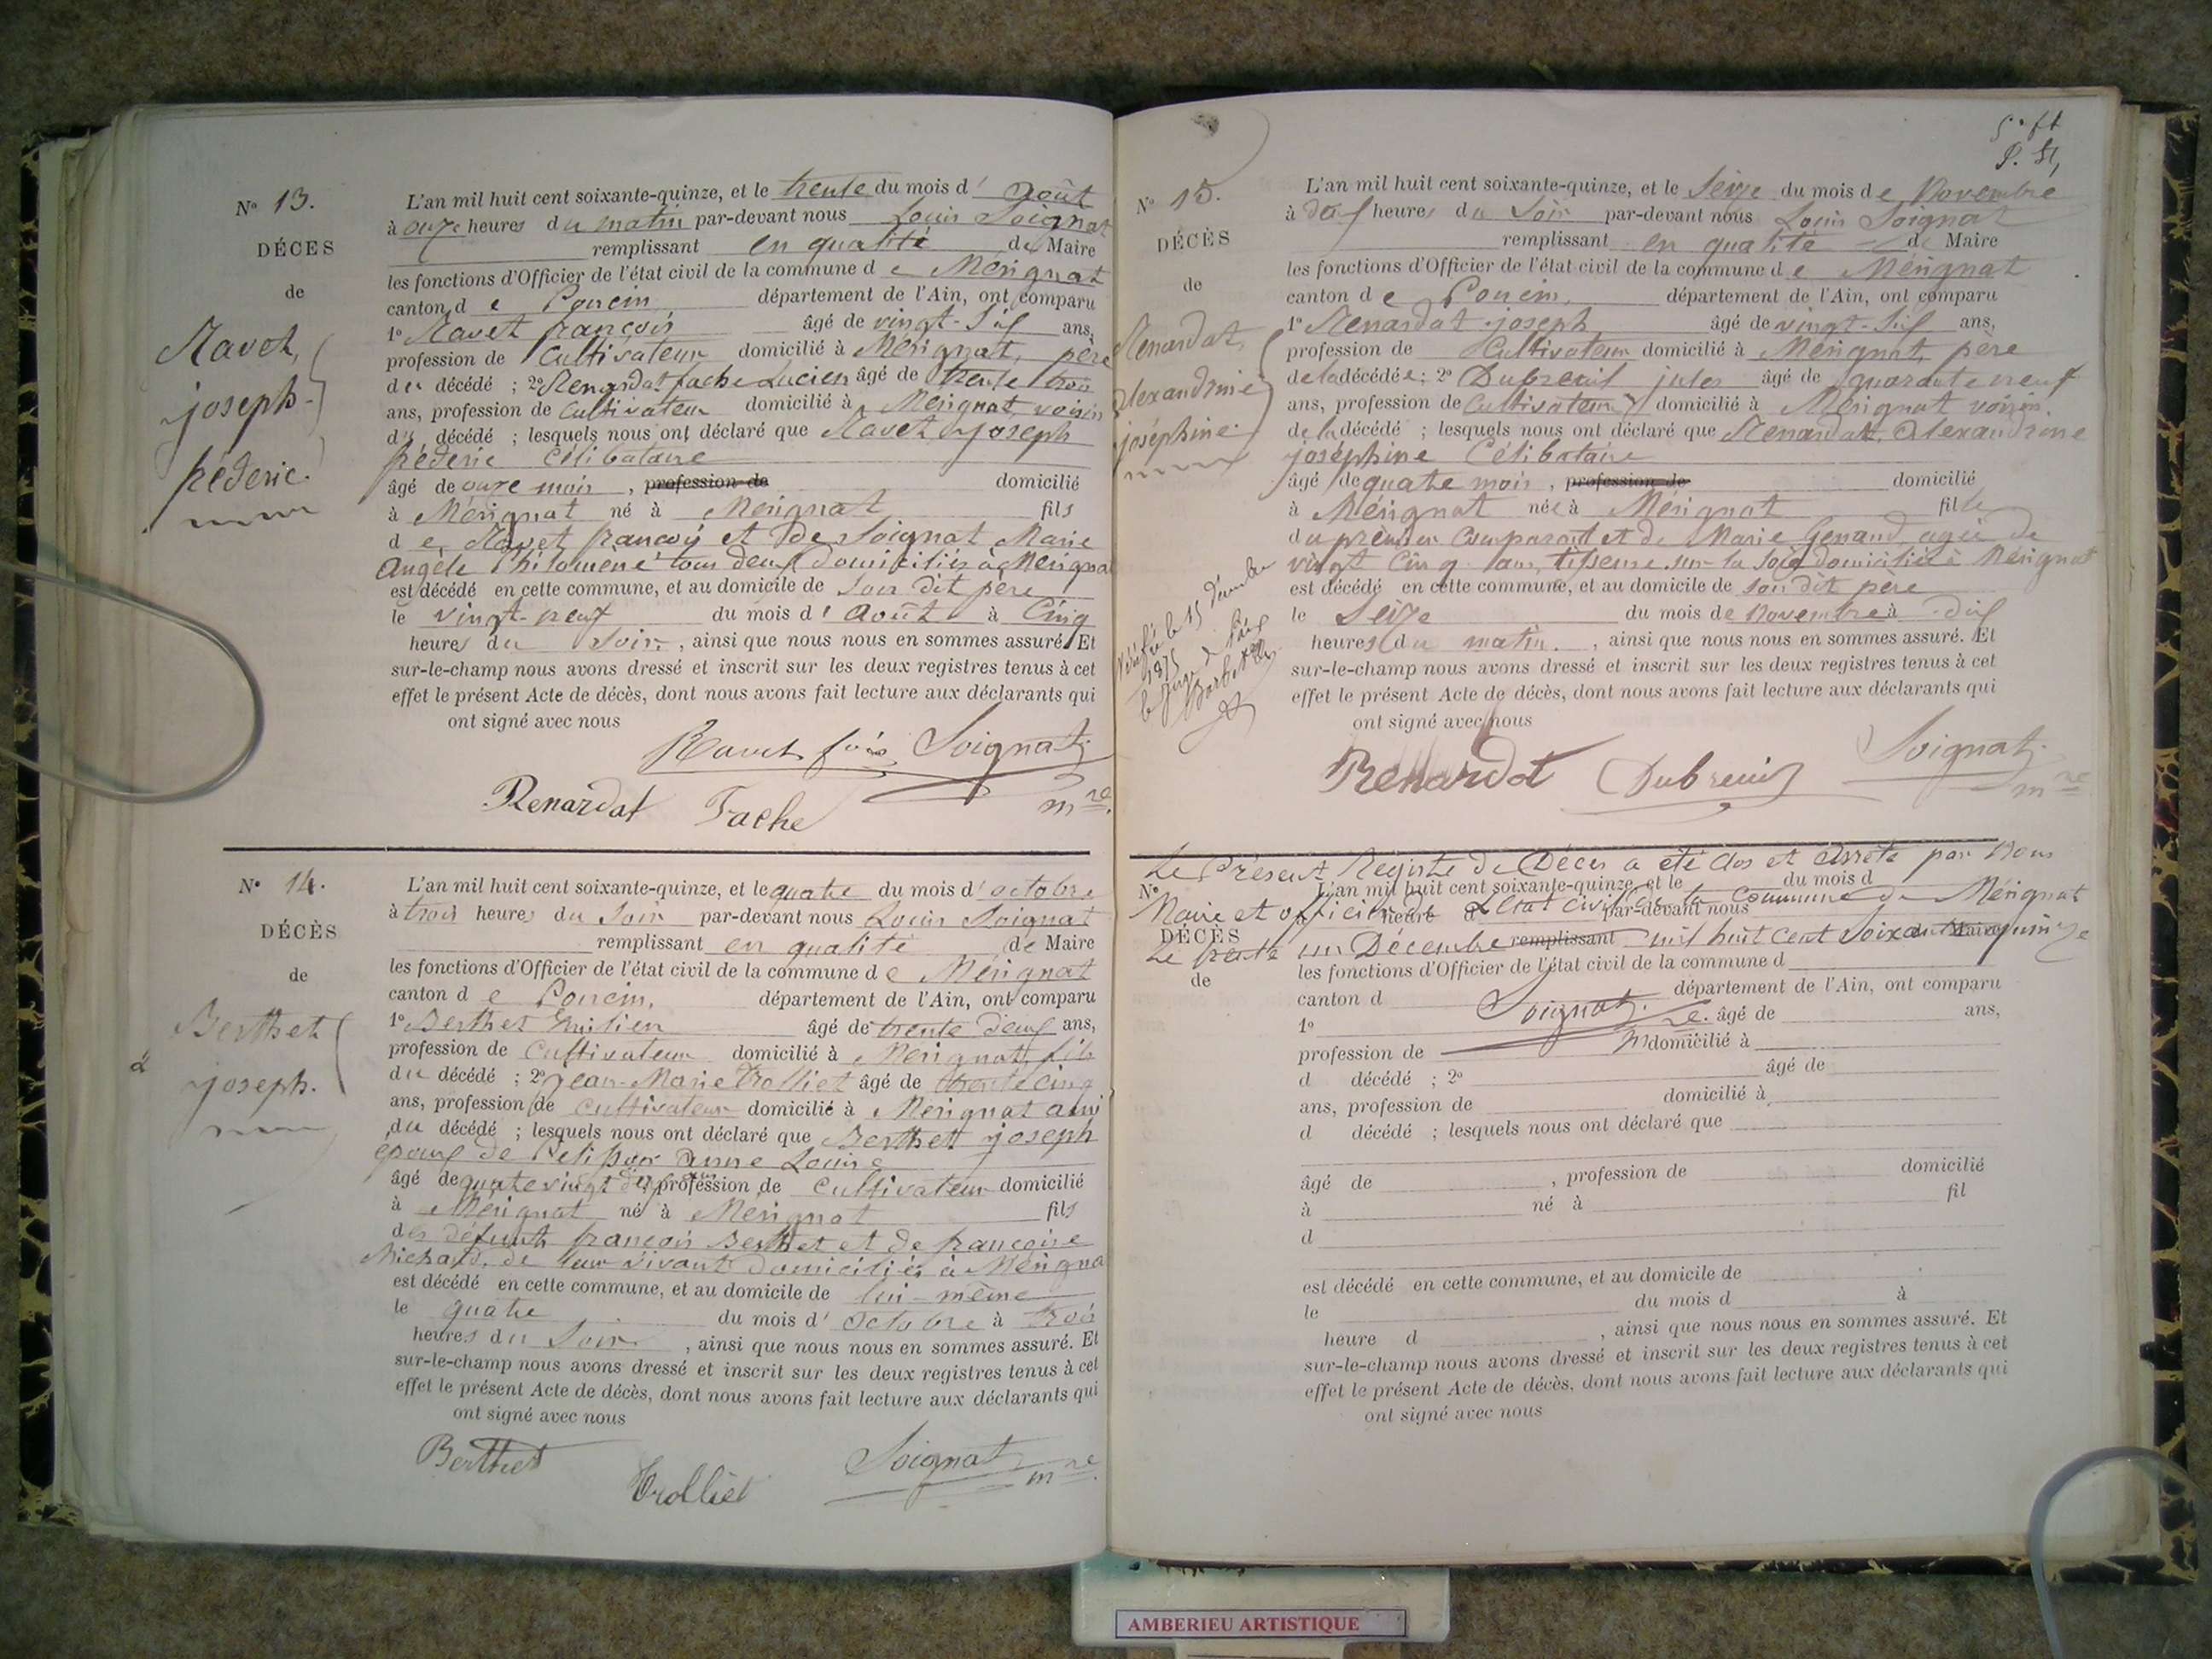 N° 13.
DÉCES
de
Ravet,
joseph-
fréderic.
L'an mil huit cent soixante-quinze, et le trente du mois d' Août
à onze heures du matin par-devant nous Louis Soignat
remplissant en qualité de Maire
les fonctions d'Officier de l'état civil de la commune de Mérignat
canton de Poncin, département de l'Ain, ont comparu
1° Ravet françois âgé de vingt-six ans,
profession de Cultivateur domicilié à Mérignat, père
du décédé ; 2° Renardat fache Lucien âgé de trente trois
ans, profession de Cultivateur domicilié à Mérignat, voisin
du décédé ; lesquels nous ont déclaré que Ravet joseph
fréderic Célibataire
âgé de onze mois , profession de domicilié
à Mérignat né à Mérignat fils
de Ravet françois et de Soignat Marie
Angèle Philomène tous deux domiciliés à Mérigna
est décédé en cette commune, et au domicile de son dit père
le vingt-neuf du mois d' Août à Cinq
heures du Soir , ainsi que nous nous en sommes assuré. Et
sur-le-champ nous avons dressé et inscrit sur les deux registres tenus à cet
effet le présent Acte de décès, dont nous avons fait lecture aux déclarants qui
ont signé avec nous
Ravet fois Soignat
Renardat Fache mre
N° 14.
DÉCÈS
de
Berthet
joseph.
L'an mil huit cent soixante-quinze, et le quatre du mois d' octobre
à trois heures du Soir par-devant nous Louis Soignat
remplissant en qualité de Maire
les fonctions d'Officier de l'état civil de la commune de Mérignat
canton de Poncin, département de l'Ain, ont comparu
1° Berthet Emilien âgé de trente deux ans,
profession de Cultivateur domicilié à Mérignat, fils
du décédé ; 2° Jean-Marie Trolliet âgé de trente cinq
ans, profession de cultivateur domicilié à Mérignat ami
du décédé ; lesquels nous ont déclaré que Berthet joseph
époux de Pelisson Anne Louise
âgé de quatre vingt dix ans profession de Cultivateur domicilié
à Mérignat né à Mérignat fils
des défunts françois Berthet et de françoise
Michaud, de leur vivant domiciliés à Mérigna
est décédé en cette commune, et au domicile de lui-même
le quatre du mois d' Octobre à trois
heures du Soir , ainsi que nous nous en sommes assuré. Et
sur-le-champ nous avons dressé et inscrit sur les deux registres tenus à cet
effet le présent Acte de décès, dont nous avons fait lecture aux déclarants qui
ont signé avec nous
Berthet Trolliet Soignat mre
N° 15.
DÉCÈS
de
Renardat,
Alexandrine
joséphine.
Vérifié le 15 décembre
1875
le Juge de Paix
L'an mil huit cent soixante-quinze, et le Seize du mois de Novembre
à dix heures du Soir par-devant nous Louis Soignat
remplissant en qualité de Maire
les fonctions d'Officier de l'état civil de la commune de Mérignat
canton de Poncin, département de l'Ain, ont comparu
1° Renardat joseph âgé de vingt-six ans,
profession de Cultivateur domicilié à Mérignat, père
de la décédée ; 2° Dubreuil jules âgé de quarante neuf
ans, profession de Cultivateur domicilié à Mérignat voisin
de la décédé ; lesquels nous ont déclaré que Renardat, Alexandrine
joséphine Célibataire
âgé de quatre mois , profession de domicilié
à Mérignat née à Mérignat fille
du premier Comparant et de Marie Genand, agée de
vingt cinq ans, tisseuse sur la soie domiciliée à Mérignat
est décédé en cette commune, et au domicile de son dit père
le Seize du mois de Novembre à dix
heures du matin. , ainsi que nous nous en sommes assuré. Et
sur-le-champ nous avons dressé et inscrit sur les deux registres tenus à cet
effet le présent Acte de décès, dont nous avons fait lecture aux déclarants qui
ont signé avec nous
Renardat Dubreuil Soignat mre
Le Présent Registre de Décès a été clos et arrêté par Nous
Maire et officier de L'état civil de la commune de Mérignat
Le trente un Décembre mil huit cent soixante quinze
Soignat.
N°
DÉCÈS
de
L'an mil huit cent soixante-quinze, et le du mois d
à heure d par-devant nous
remplissant Maire
les fonctions d'Officier de l'état civil de la commune d
canton d département de l'Ain, ont comparu
1° âgé de ans,
profession de domicilié à
d décédé ; 2° âgé de
ans, profession de domicilié à
d décédé ; lesquels nous ont déclaré que
âgé de , profession de domicilié
à né à fil
d
est décédé en cette commune, et au domicile de
le du mois d à
heure d , ainsi que nous nous en sommes assuré. Et
sur-le-champ nous avons dressé et inscrit sur les deux registres tenus à cet
effet le présent Acte de décès, dont nous avons fait lecture aux déclarants qui
ont signé avec nous
AMBERIEU ARTISTIQUE